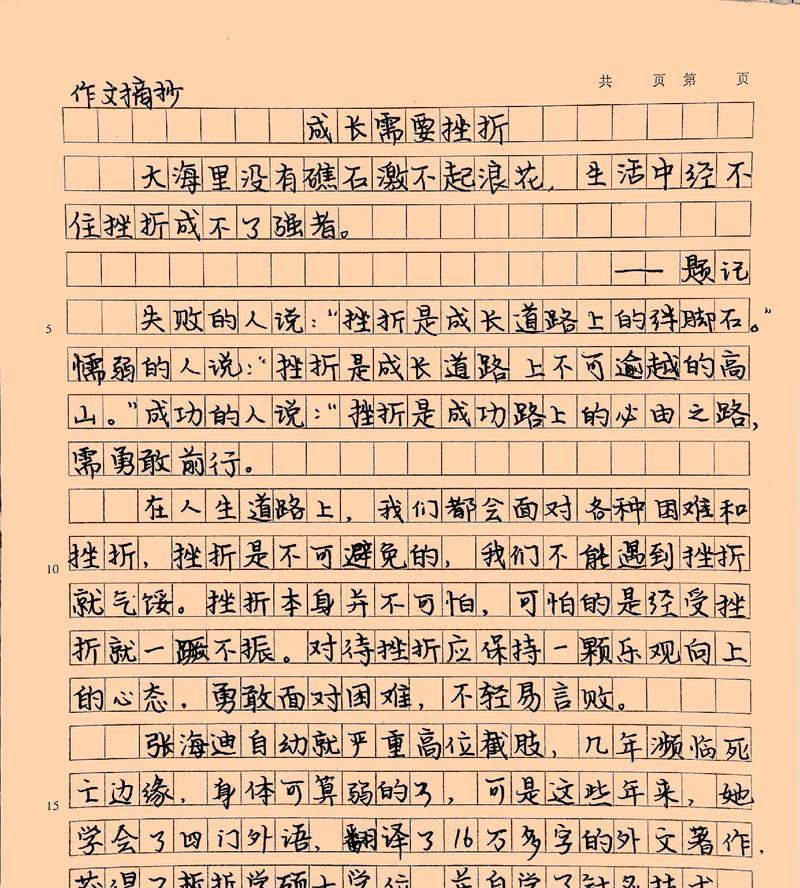 共 页 第 页
作文摘抄
成长需要挫折
大海里没有礁石激不起浪花，生活中经不
住挫折成不了强者。
——题记
5 失败的人说："挫折是成长道路上的绊脚石。"
懦弱的人说："挫折是成长道路上不可逾越的高
山。"成功的人说："挫折是成功路上的必由之路，
需勇敢前行。
在人生道路上，我们都会面对各种困难和
10 挫折，挫折是不可避免的，我们不能遇到挫折
就气馁。挫折本身并不可怕，可怕的是经受挫
折就一蹶不振。对待挫折应保持一颗乐观向上
的心态．勇敢面对困难，不轻易言败。
张海迪自动就严重高位截肢，几年濒临死
15 亡边缘，身体可算弱的了，可是这些年来，她
学会了四门外语，翻译了16万多字的外文著作．
获得了哲学硕士学位